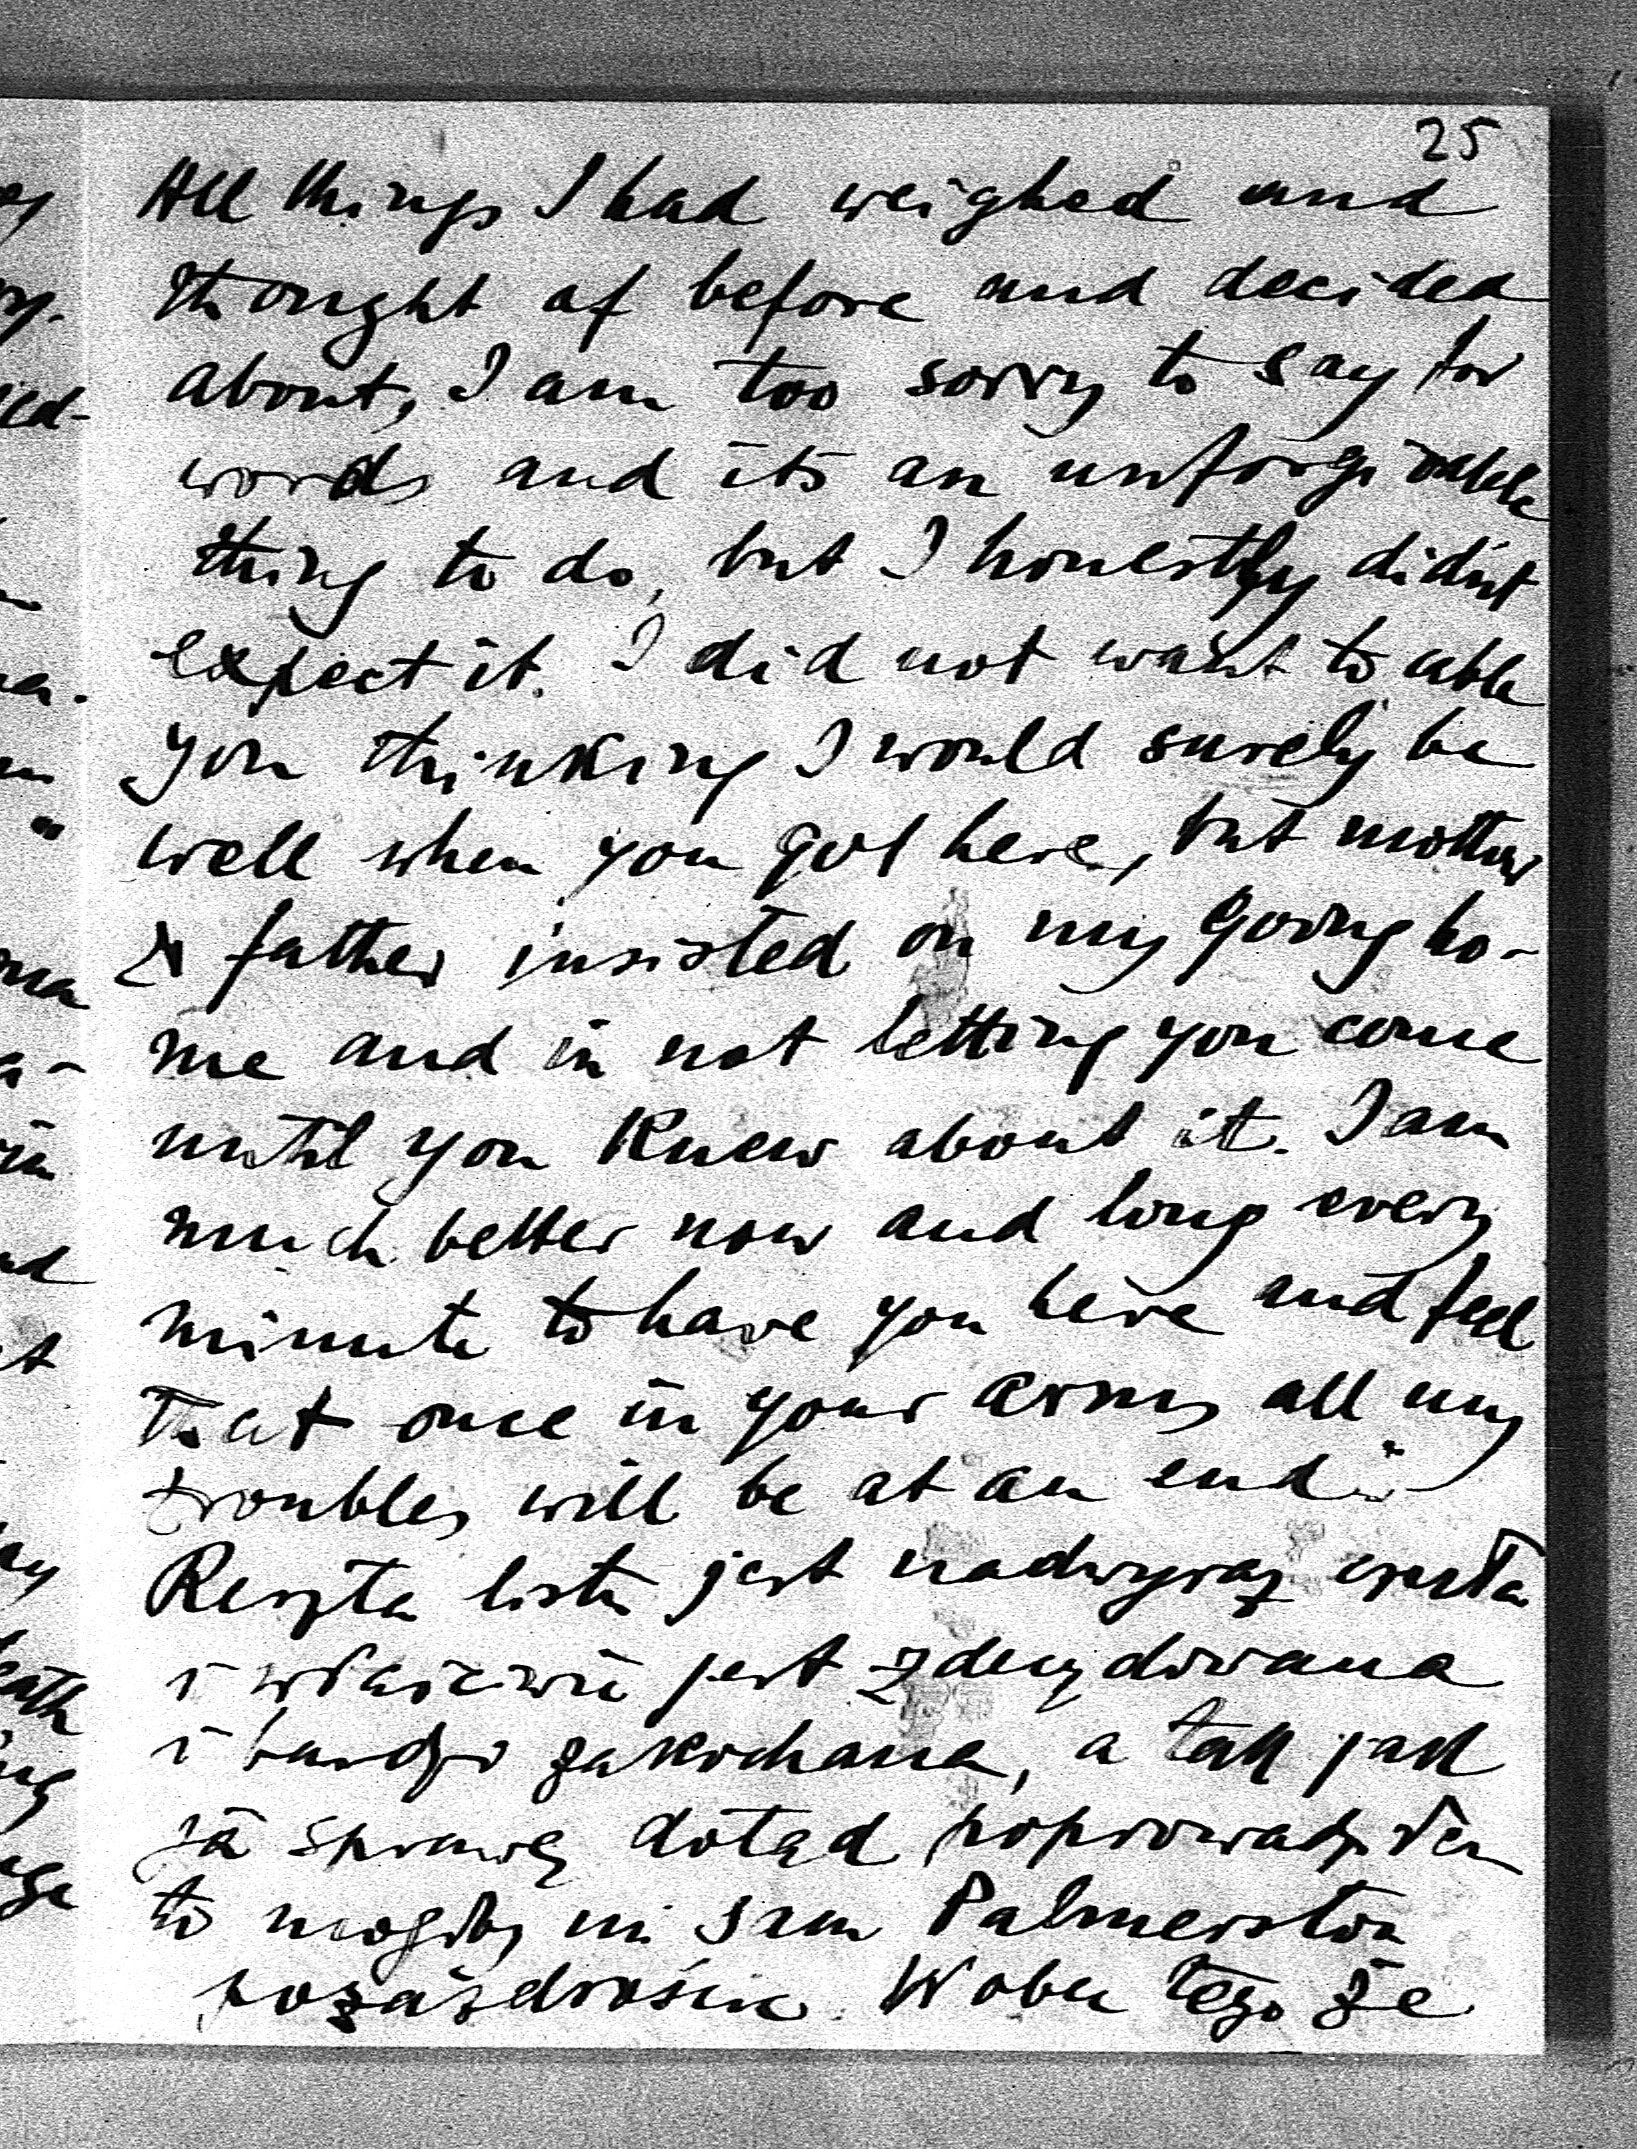 25
All things I had weighed and
thought of before and decided
about, I am too sorry to say for
words and its an unforgivable
thing to do, but I honestly didn't
expect it. I did not want to cable
you thinking I would surely be
well when you got here, but mother
& father insisted on my going ho-
me and in not letting you come
until you knew about it. I am
much better now and long every
minute to have you here and feel
that once in your arms all my
troubles will be at an end"
Reszta listu jest nadwyraz czuła
i właściwie jest zdecydowana
i bardzo zakochana, a tak jak
ja sprawę dotąd poprowadziłem
to mógłby mi sam Palmerston
pozazdrościć. Wobec tego że